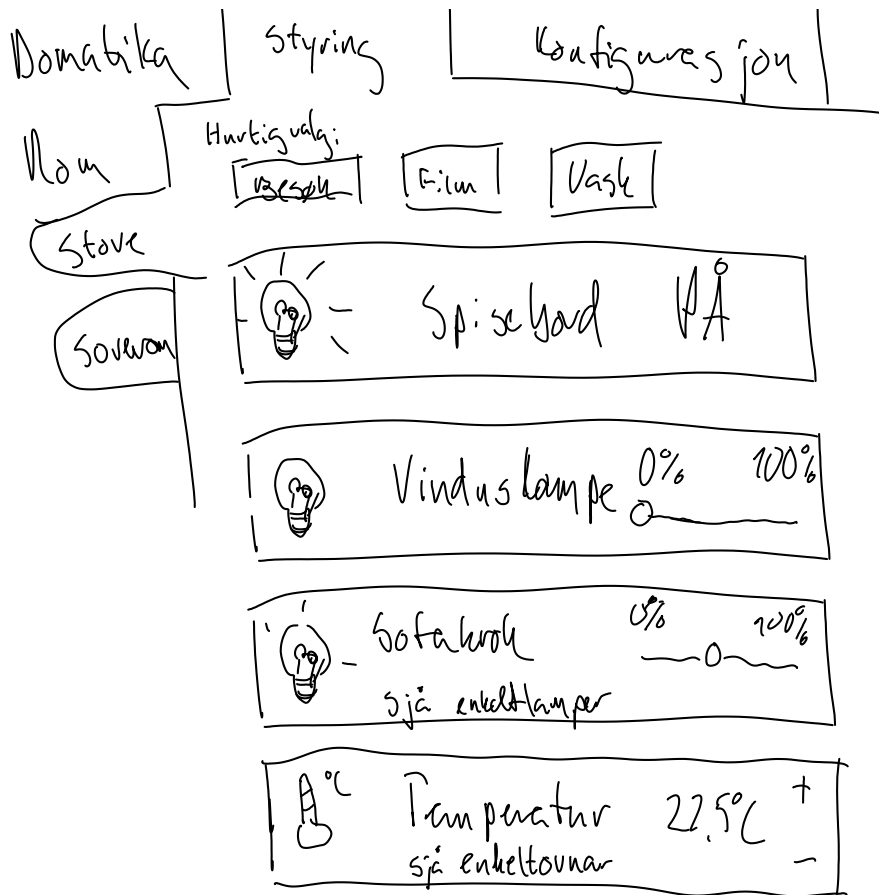 Domatika
Styring
Konfigurasjon
Rom
Stove
Soverom
Hurtigvalg:
Besøk
Film
Vask
Spisebord PÅ
Vinduslampe 0% 100%
Sofakrok 0% 100%
sjå enkeltlamper
°C Temperatur 22,5°C +
sjå enkeltovnar -